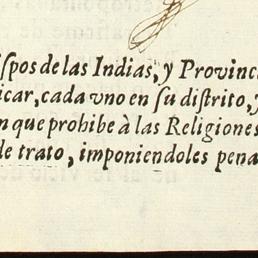 iſpos de las Indias, y Provinc
icar, cada vno en ſu diſtrito, y
n que prohibe à las Religiones
de trato, imponiendoles pena